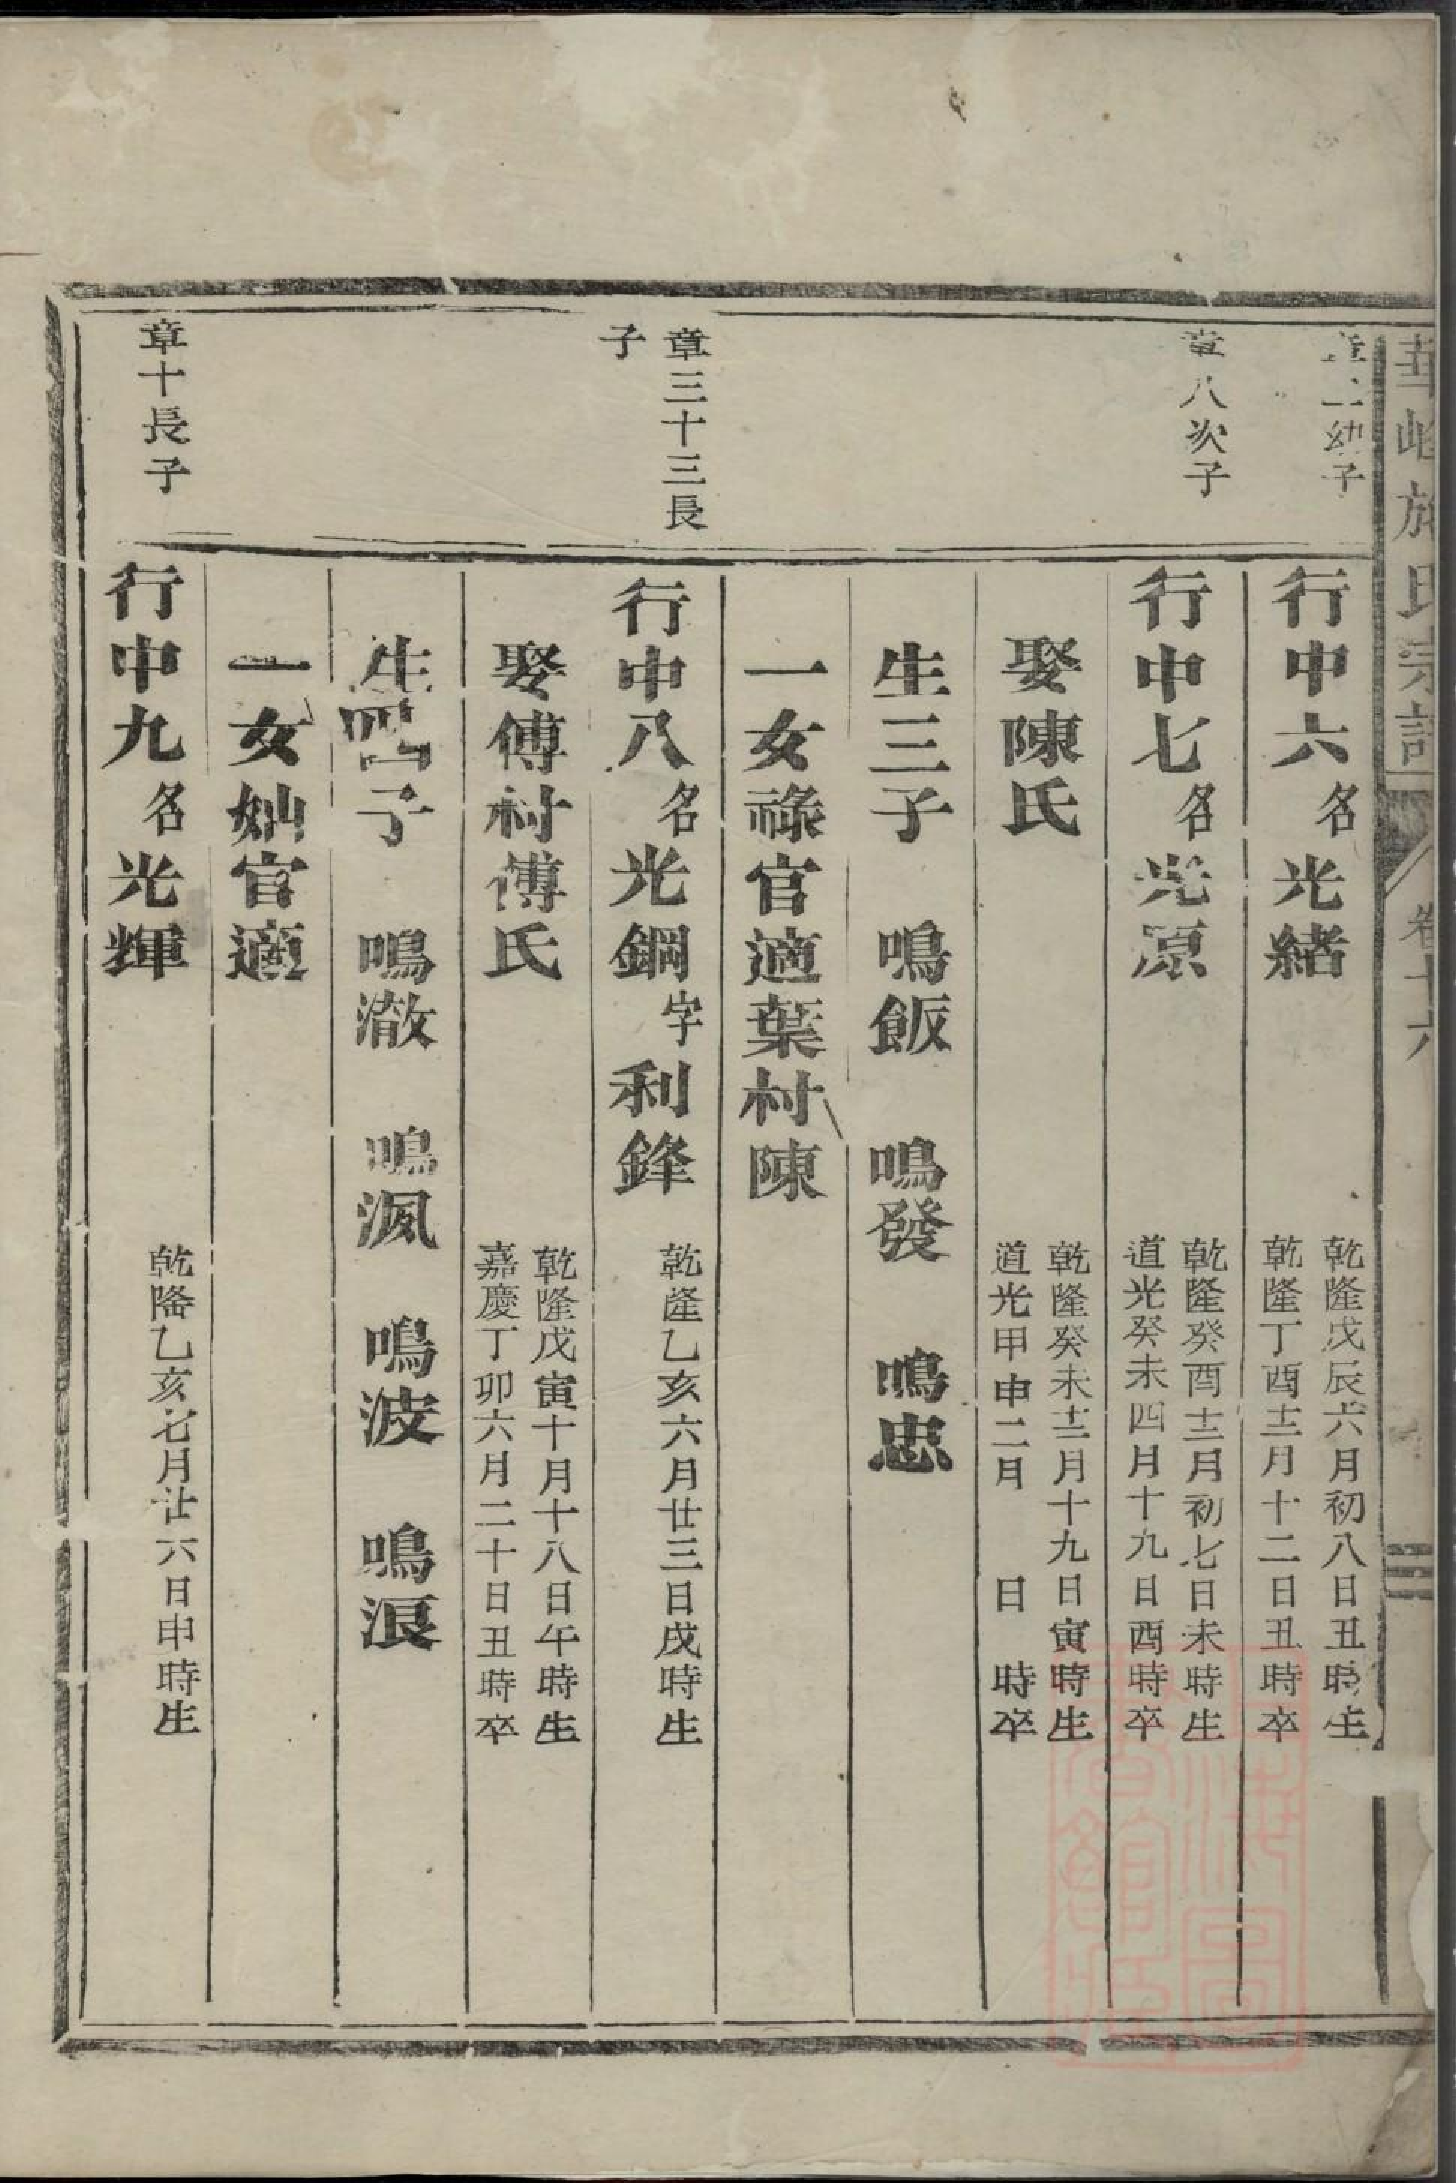 華峴施氏宗譜 卷十六
章二幼子
行中六名光緒
乾隆戊辰六月初八日丑時生
乾隆丁酉十二月十二日丑時卒
章八次子
行中七名光原
乾隆癸酉十二月初七日未時生
道光癸未四月十九日酉時卒
娶陳氏
乾隆癸未十二月十九日寅時生
道光甲申二月 日 時卒
生三子 鳴飯 鳴發 鳴忠
一女祿官適葉村陳
章三十三長子
行中八名光鋼字利鋒
乾隆乙亥六月廿三日戌時生
娶傅村傅氏
乾隆戊寅十月十八日午時生
嘉慶丁卯六月二十日丑時卒
生四子 鳴澈 鳴渢 鳴波 鳴浪
一女妯官適
章十長子
行中九名光輝
乾隆乙亥七月廿六日申時生